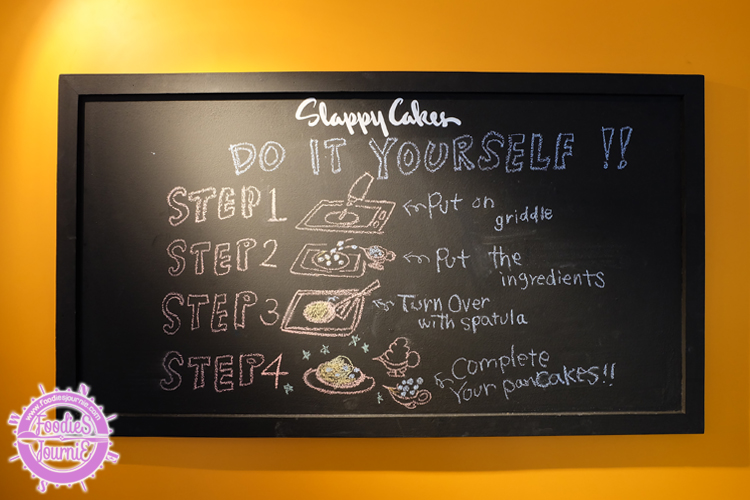 Slappy Cakes
DO IT YOURSELF !!
STEP 1
Put on
griddle
STEP 2
Put the
ingredients
STEP 3
Turn Over
with spatula
STEP 4
Complete
Your pancakes!!
www.foodiesjournie.com
FoodieS
JourniE